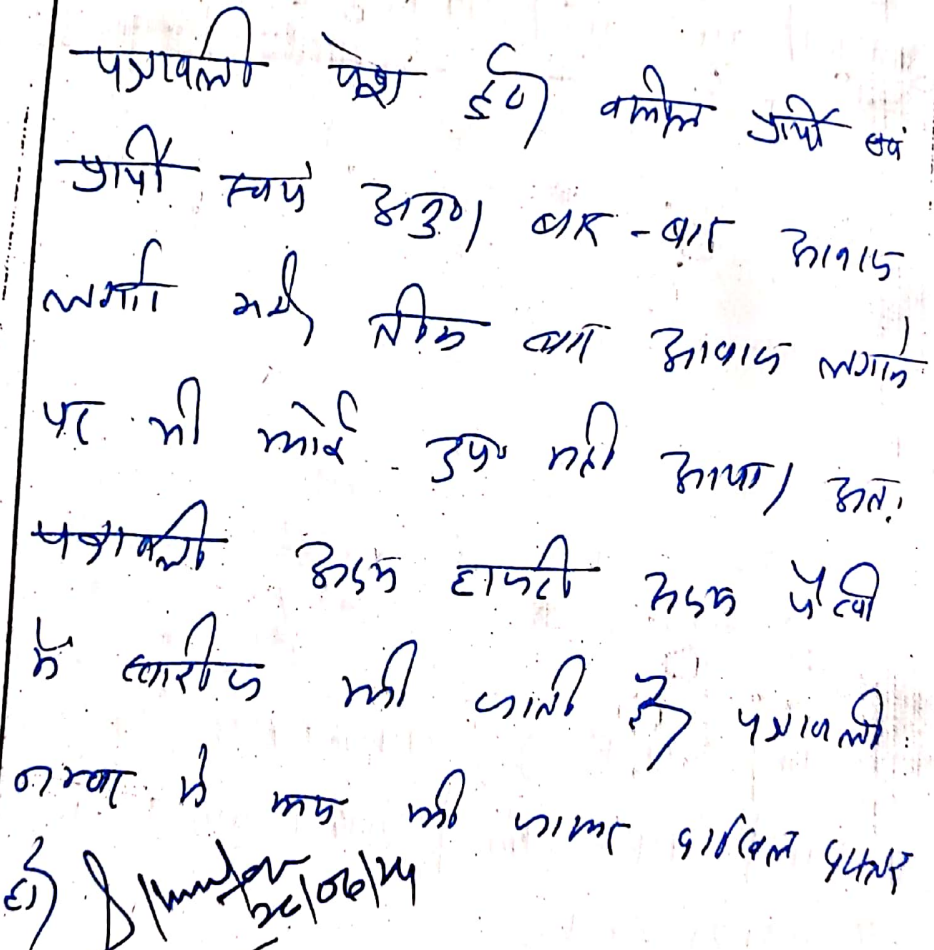 पत्रावली पेश हुई। वकील प्रार्थी एवं
प्रार्थी स्वयं अनु०। बार-बार आवाज
लगाई गई, तीन बार आवाज लगाने
पर भी कोई उप० नहीं आया। अतः
पत्रावली अदम हाजरी अदम पैरवी
में खारीज की जाती है, पत्रावली
नम्बर से कम की जाकर दाखिल दफ्तर
हो।
/06/24